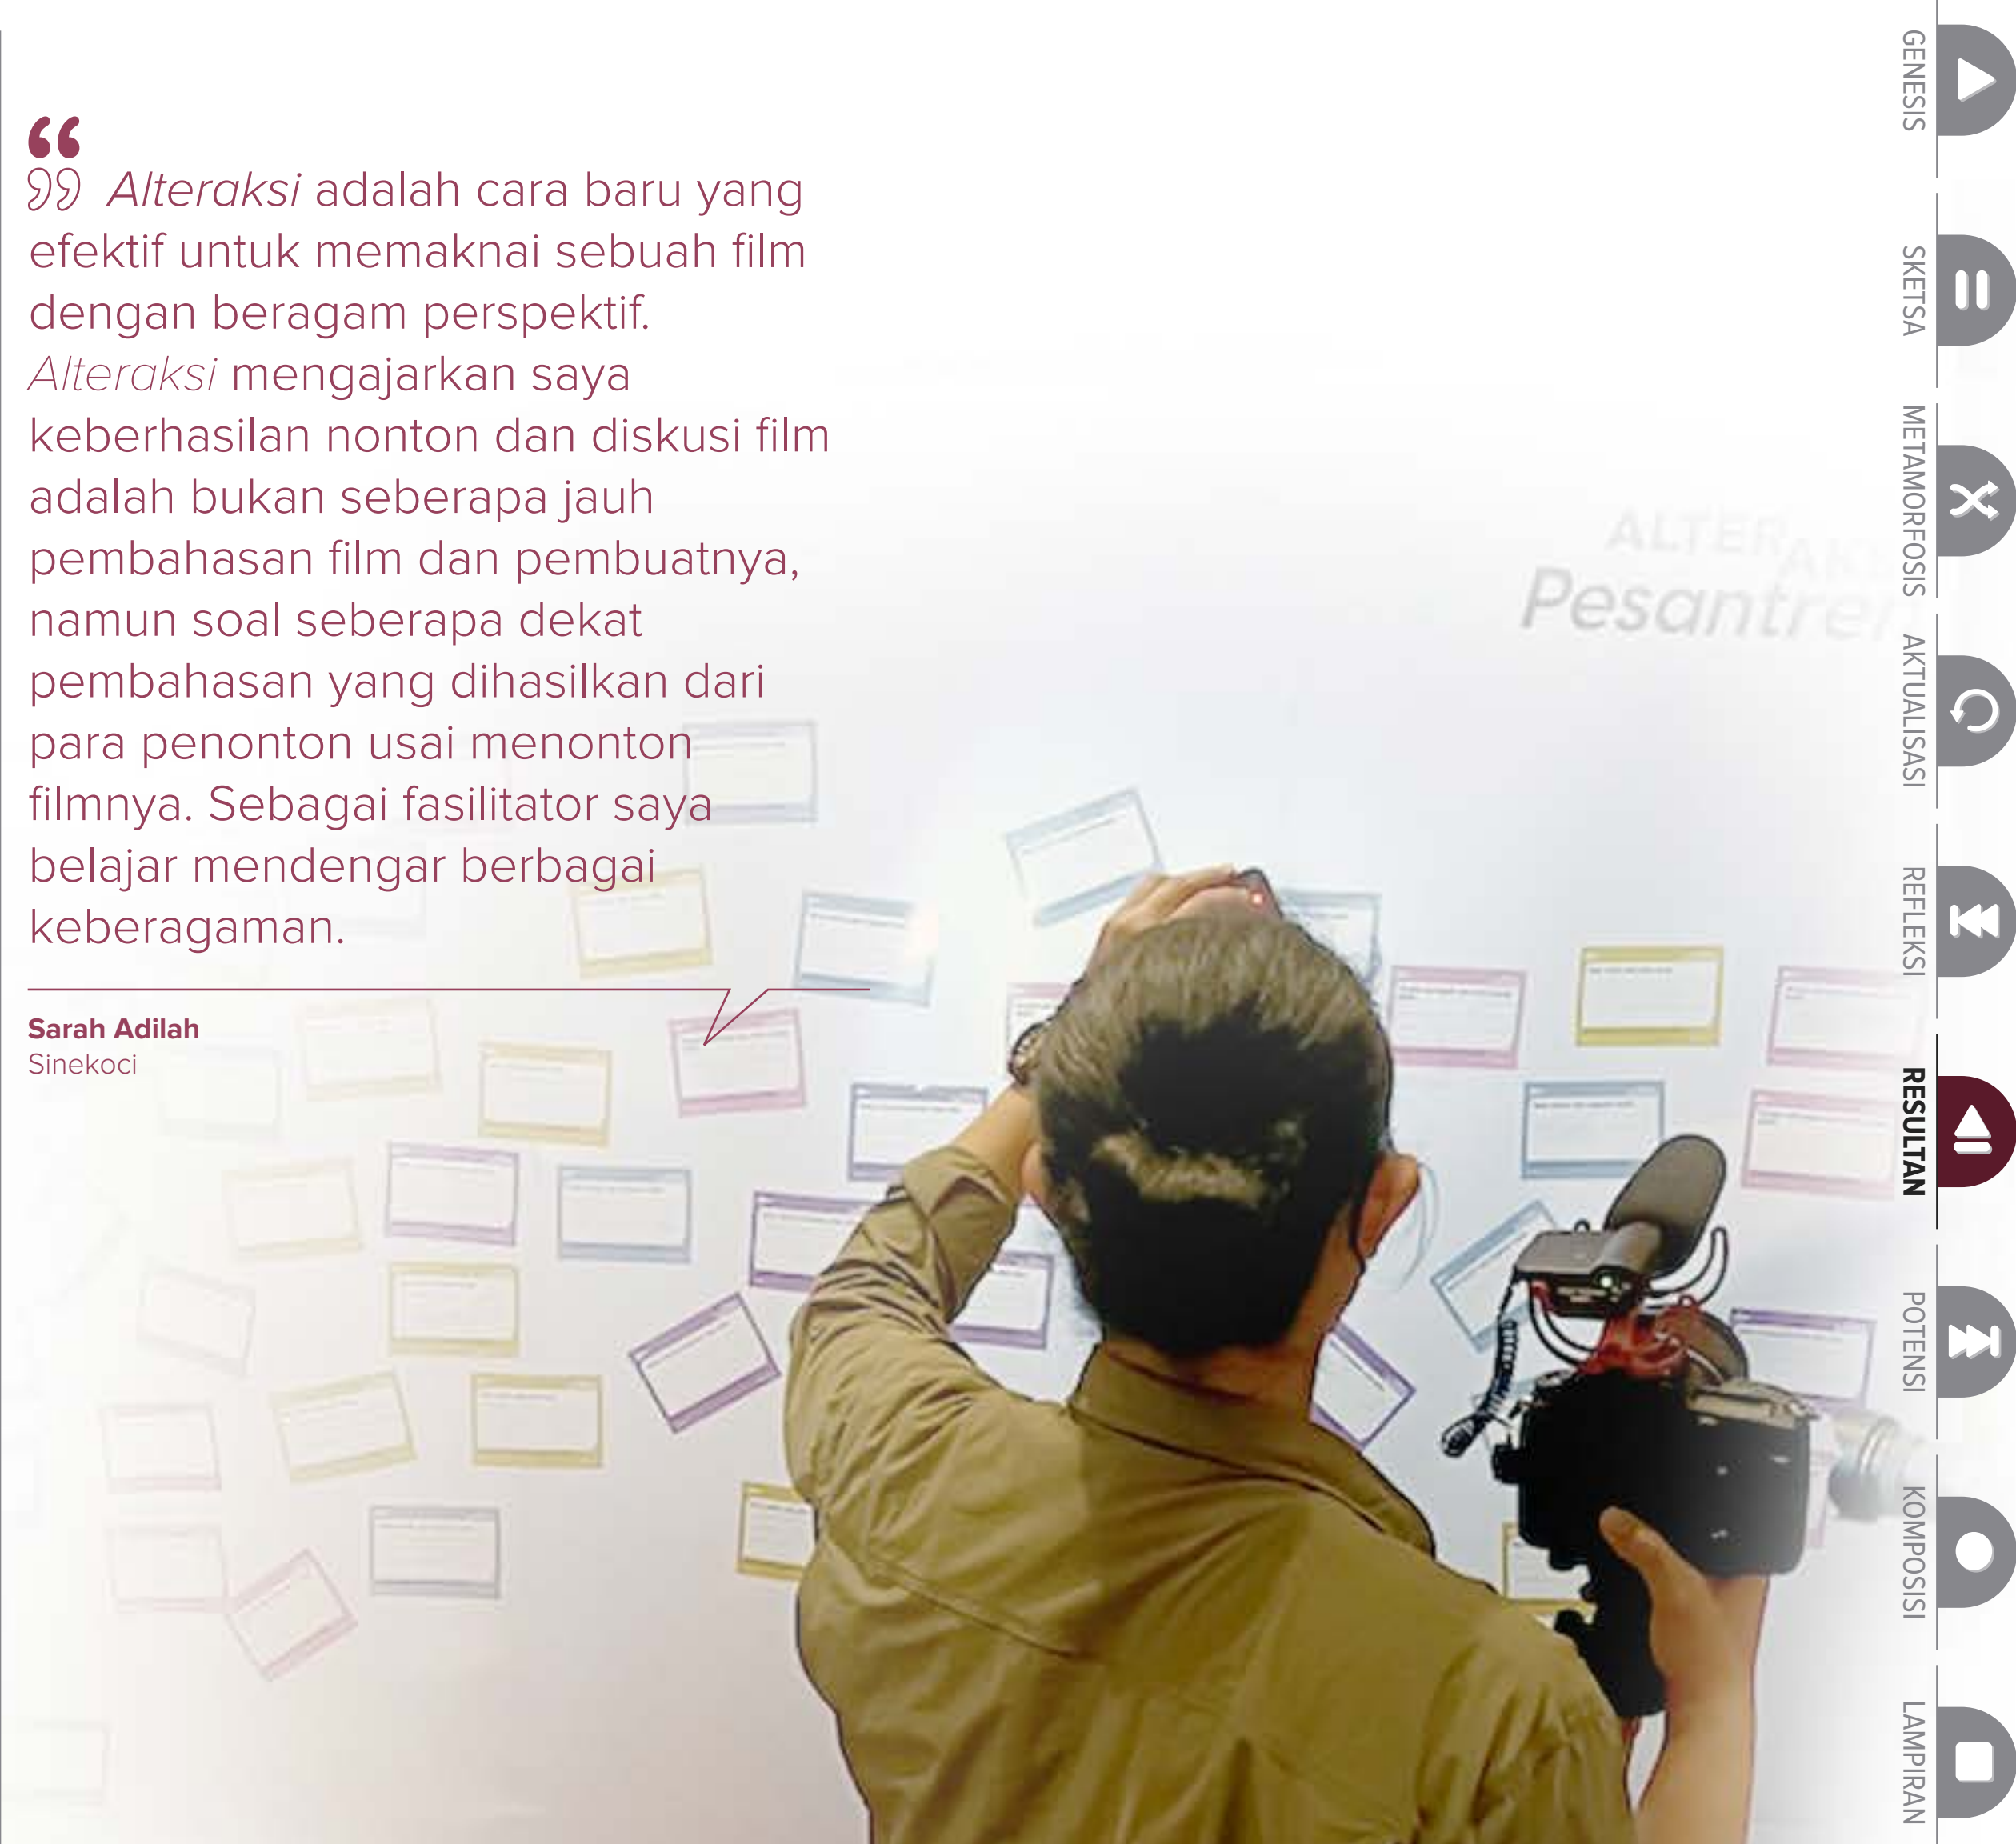 “
”
Alteraksi adalah cara baru yang
efektif untuk memaknai sebuah film
dengan beragam perspektif.
Alteraksi mengajarkan saya
keberhasilan nonton dan diskusi film
adalah bukan seberapa jauh
pembahasan film dan pembuatnya,
namun soal seberapa dekat
pembahasan yang dihasilkan dari
para penonton usai menonton
filmnya. Sebagai fasilitator saya
belajar mendengar berbagai
keberagaman.
Sarah Adilah
Sinekoci
ALTERAK
Pesantren
GENESIS
SKETSA
METAMORFOSIS
AKTUALISASI
REFLEKSI
RESULTAN
POTENSI
KOMPOSISI
LAMPIRAN